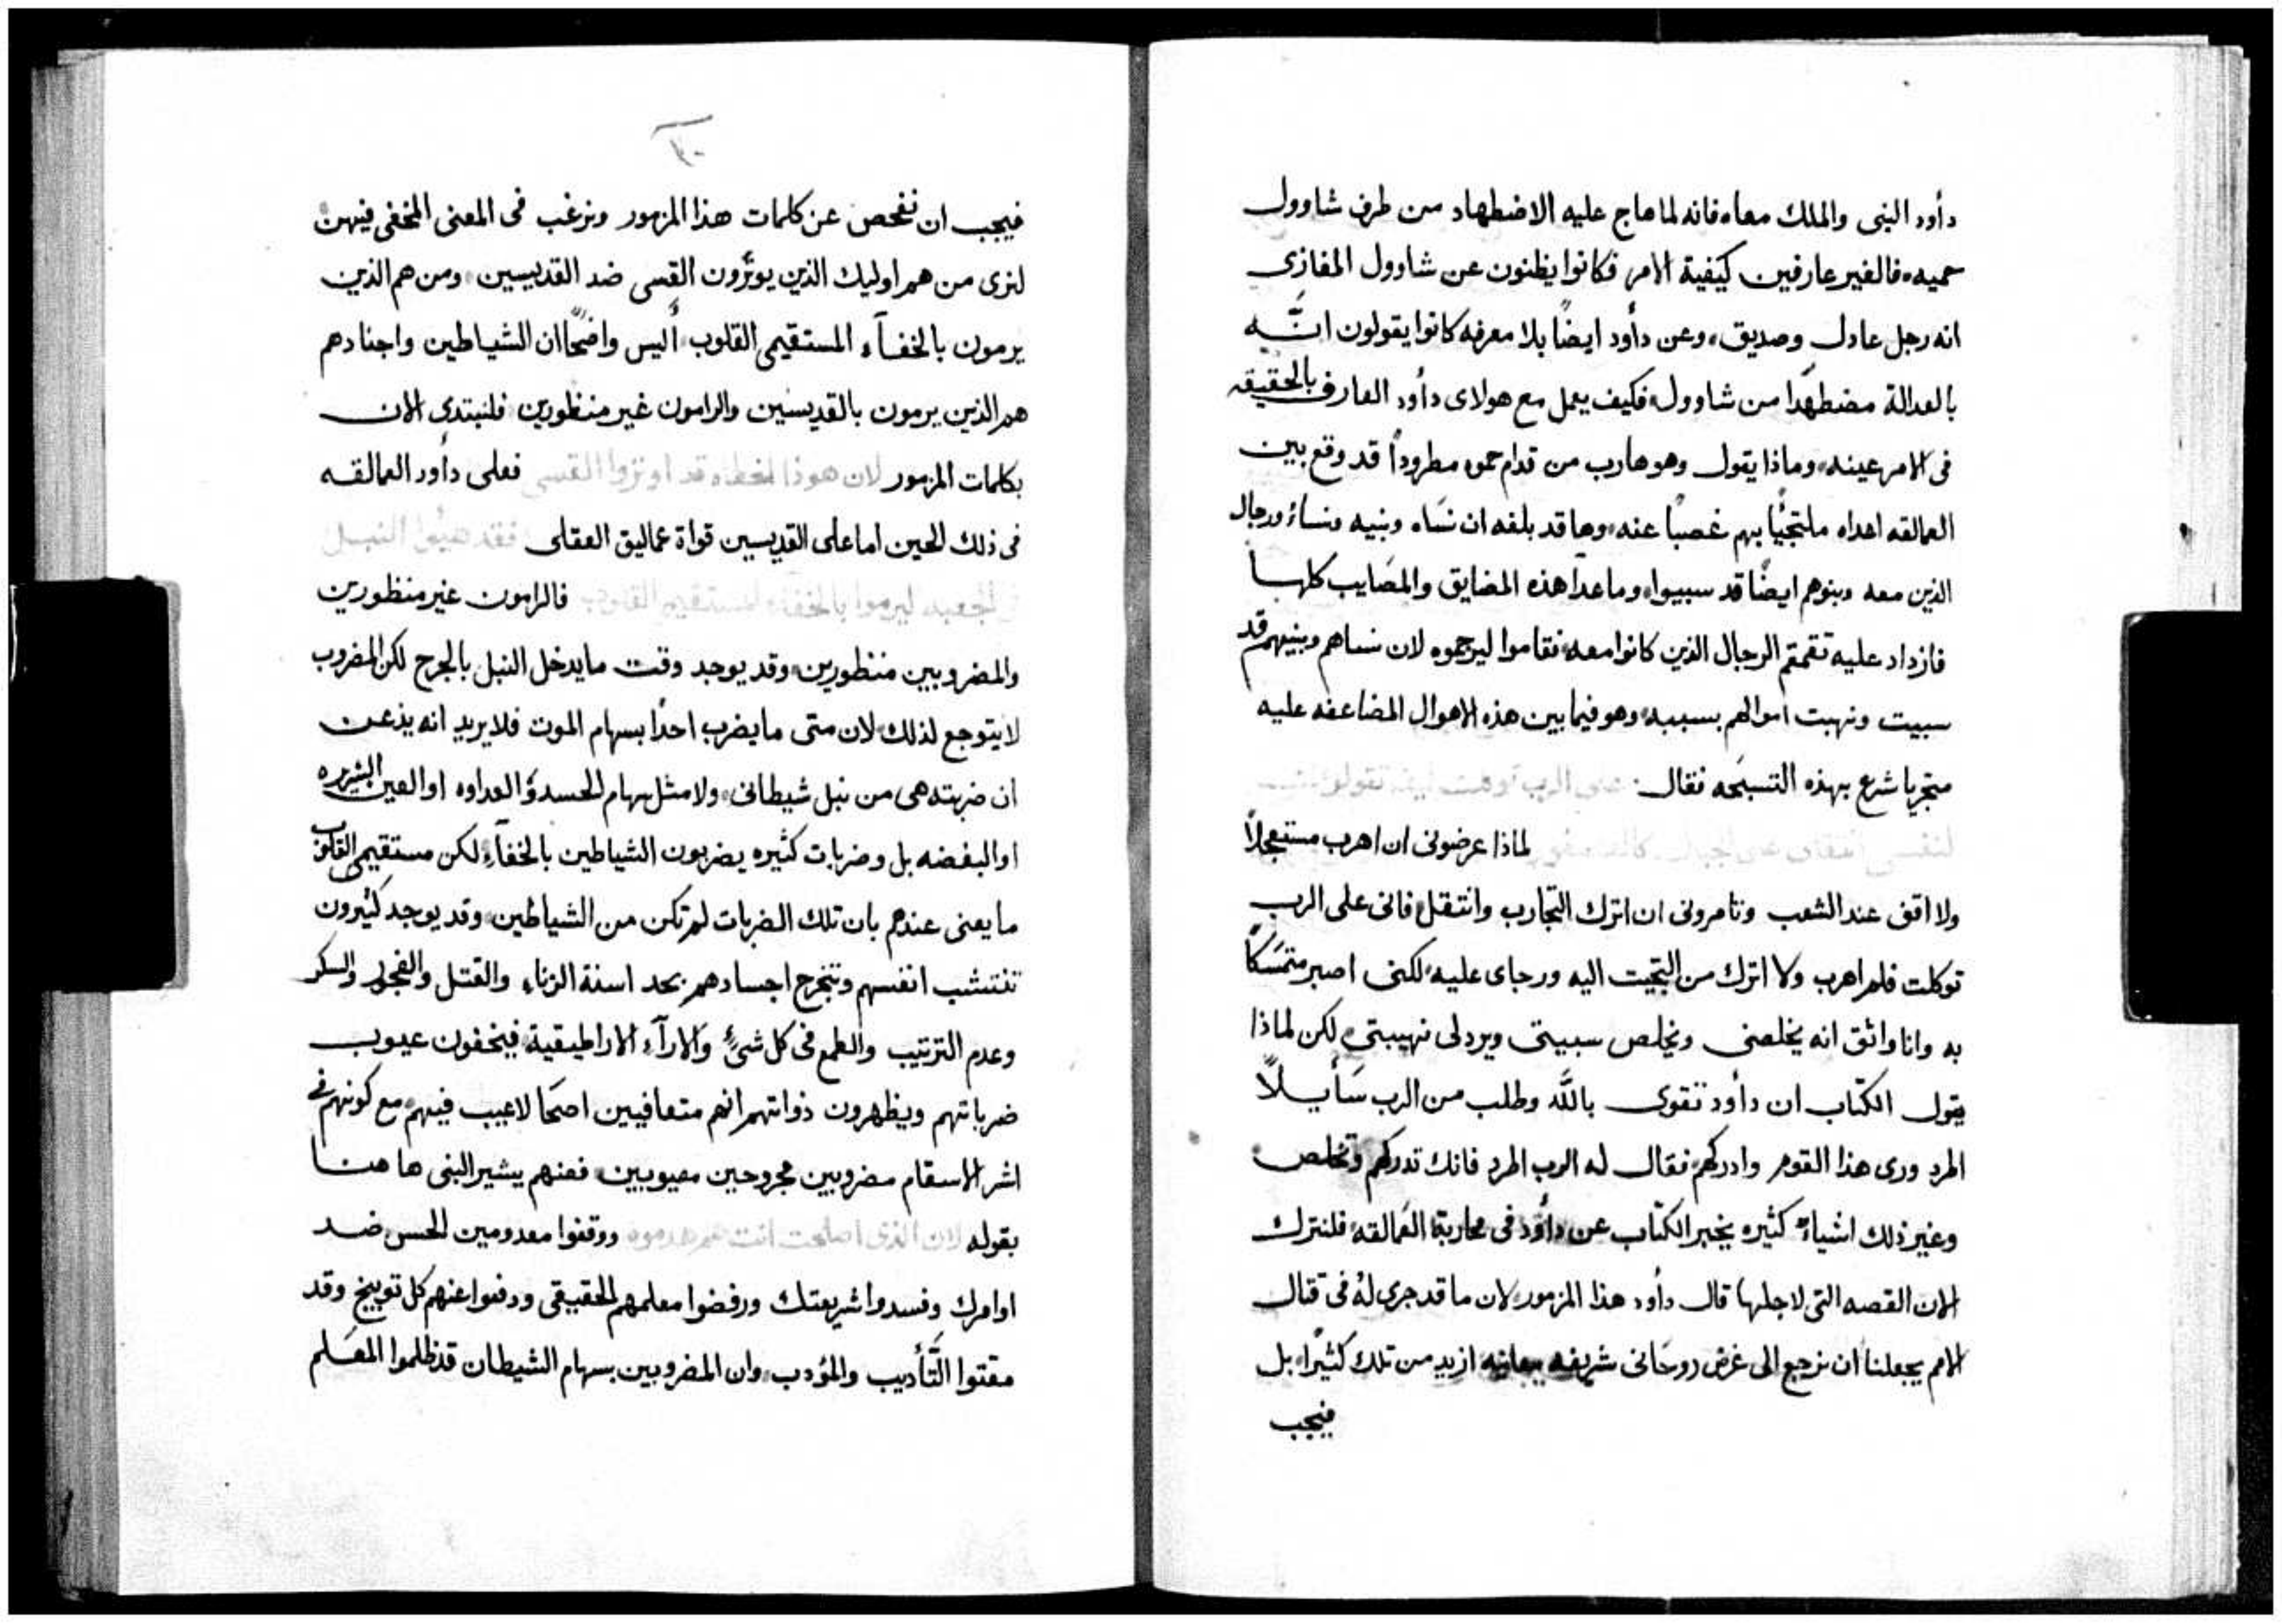 دأود النبى والملك معاه فانه لما هاج عليه الاضطهاد من طرف شاوول
حميه، فالغير عارفين كيفية الامر فكانوا يظنون عن شاوول المغازى
انه رجل عادل وصديق، وعن دأود ايضًا بلا معرفه كانوا يقولون انَّه
بالعدالة مضطهدًا من شاوول، فكيف يعمل مع هولاى دأود العارف بالحقيقه
فى الامر عينه، وماذا يقول وهو هارب من قدام حموه مطرودًا قد وقع بين
العمالقه اعداه ملتجيًا بهم غصبًا عنه، وها قد بلغه ان نساه وبنيه ونساء ورجال
الذين معه وبنوهم ايضًا قد سبيوا، وماعدا هذه المضايق والمصَايب كلها
فازداد عليه تقمقم الرجال الذين كانوا معه، فقاموا ليرجموه لان نساهم وبنيهم قد
سبيت ونهبت اموالهم بسببه، وهو فيما بين هذه الاهوال المضاعفه عليه
متجريا شرع بهذه التسبحَه فقال: على الرب توكلت كيف تقولون
لنفسى انتقلى على الجبال كالعصفور لماذا عرضونى ان اهرب مستعجلاً
ولا اقف عند الشعب وتامرونى ان اترك التجارب وانتقل، فانى على الرب
توكلت فلم اهرب ولا اترك من التجيت اليه ورجاى عليه، لكنى اصبر متمسَكًا
به وانا واثق انه يخلصنى ويخلص سبيتى ويرد لى نهيبتى، لكن لماذا
يقول الكتاب ان دأود تقوى بالله وطلب من الرب سَأيلاً
اطرد ورى هذا القوم وادركهم، فقال له الرب اطرد فانك تدركهم وتخلص،
وغير ذلك اشياءً كثيره يخبر الكتاب عن دأود فى محاربة العمالقه، فلنترك
الان القصه التى لاجلها قال دأود هذا المزمور، لان ما قد جرى لهُ فى قتال
الامم يجعلنا ان نرجع الى غرض روحَانى شريفه معانيه ازيد من تلك كثيرًا، بل
فيجب
فيجب ان نفحص عن كلمات هذا المزمور ونرغب فى المعنى المخفى فيهن
لنرى من هم اوليك الذين يوتّرون القسى ضد القديسين، ومن هم الذين
يرمون بالخفآء المستقيمى القلوب، أليس واضحًا ان الشياطين واجنادهم
هم الذين يرمون بالقديسين والرامون غير منظورين، فلنبتدى الان
بكلمات المزمور لان هوذا الخطاه قد اوتروا القسى فعلى دأود العمالقه
فى ذلك الحين اما على القديسين قواة عماليق العقلى فقد هيُوا النبل
فى الجعبه ليرموا بالخفآء المستقيمى القلوب فالرامون غير منظورين
والمضروبين منظورين، وقد يوجد وقت ما يدخل النبل بالجرح لكن المضروب
لا يتوجع لذلك، لان متى ما يضرب احدًا بسهام الموت فلا يريد انه يذعن
ان ضربته هى من نبل شيطانى، ولا مثل سهام الحسد والعداوه او العين الشريره
او البغضه بل وضربات كثيره يضربون الشياطين بالخفآء، لكن مستقيمى القلوب
ما يعنى عندهم بان تلك الضربات لم تكن من الشياطين، وقد يوجد كثيرون
تفتشب انفسهم وتنجرح اجسادهم بحد اسنة الزناء والقتل والفجور والسكر
وعدم الترتيب والطمع فى كل شئٍ والارآء الاراطيقية، فيخفون عيوب
ضرباتهم ويظهرون ذواتهم انهم متعافيين اصحَا لا عيب فيهم، مع كونهم فى
اشر الاسقام مضروبين مجروحين معيوبين، فعنهم يشير النبى هاهنا
بقوله لان الذى اصلحت انت هم هدموه ووقفوا معدومين الحس ضد
اوامرك وفسدوا شريعتك ورفضوا معلمهم الحقيقى ودفعوا عنهم كل توبيخ وقد
مقتوا التَّأديب والمؤدب، وان المضروبين بسهام الشيطان قد ظلموا المعَلم